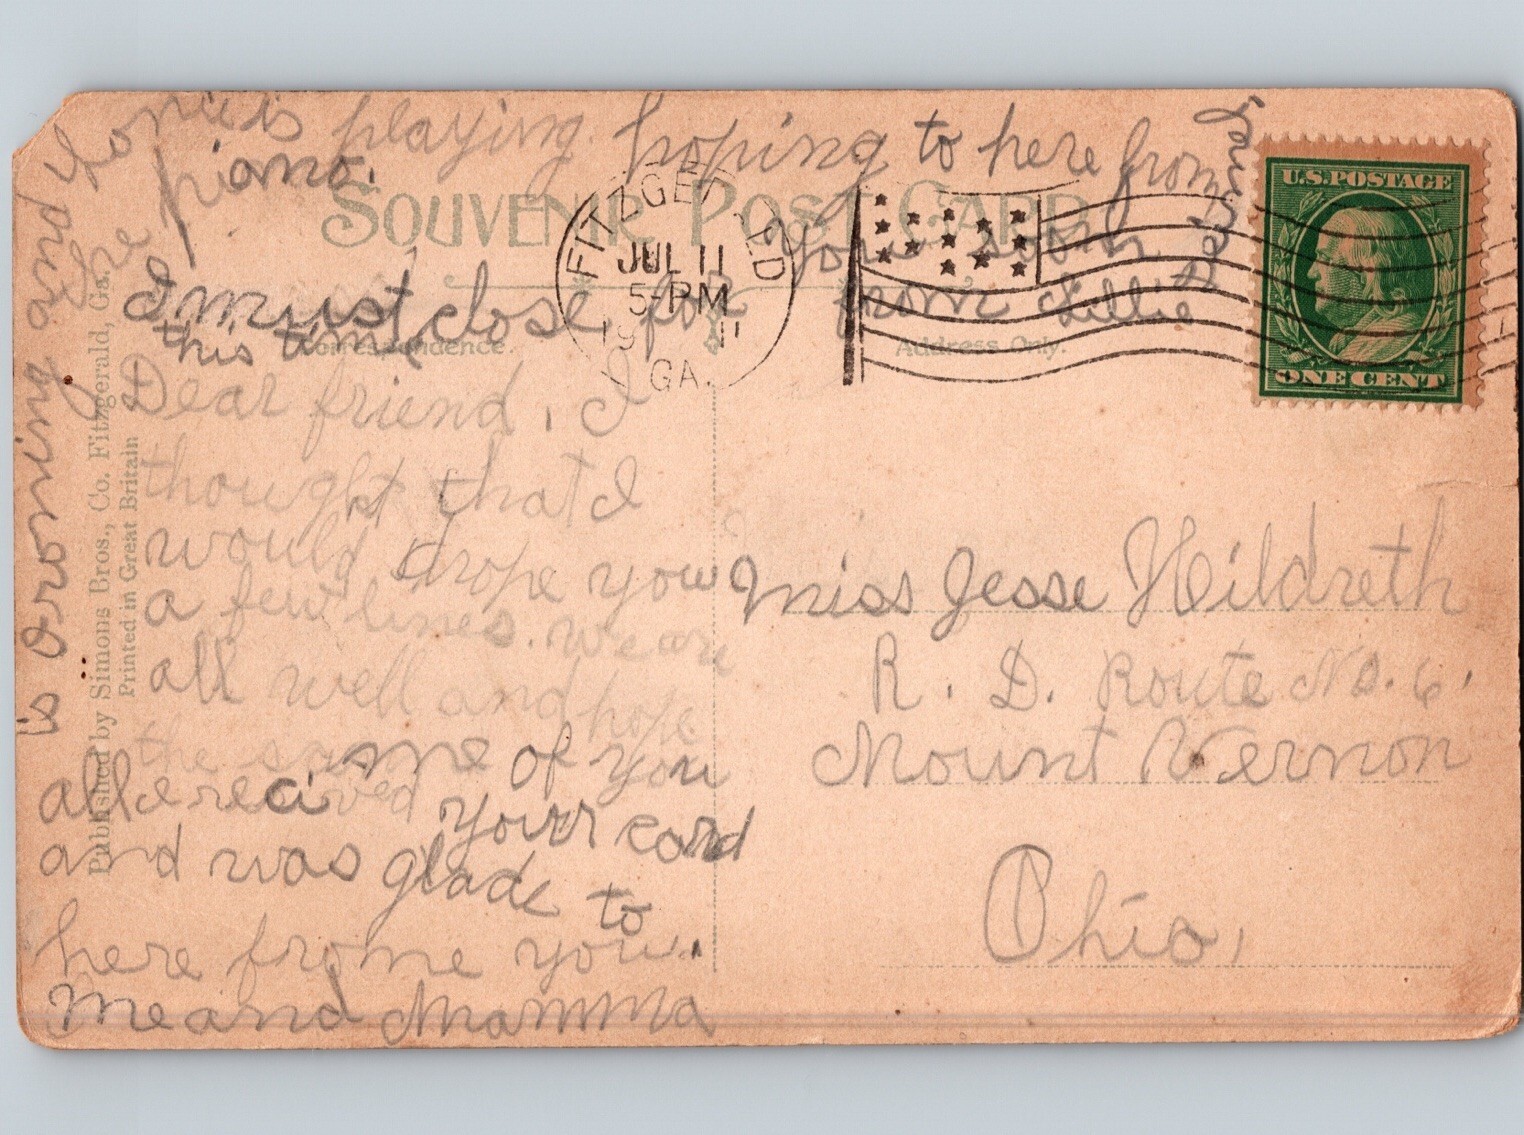 Dear friend, I
thought that I
would drope you
a few lines. we are
all well and hope
the same of you
all e recived your card
and was glade to
here frome you.
Me and Mamma
is ironing and Lonie is playing
the piano.
I must close for
this time
hoping to here from
you soon
from Lillie
SOUVENIR POST CARD
Correspondence.
Address Only.
FITZGERALD
JUL 11
5-PM
1911
GA.
U.S.POSTAGE
ONE CENT
Miss Jesse Hildreth
R. D. Route No. 6.
Mount Vernon
Ohio,
Published by Simons Bros., Co. Fitzgerald, Ga.
Printed in Great Britain